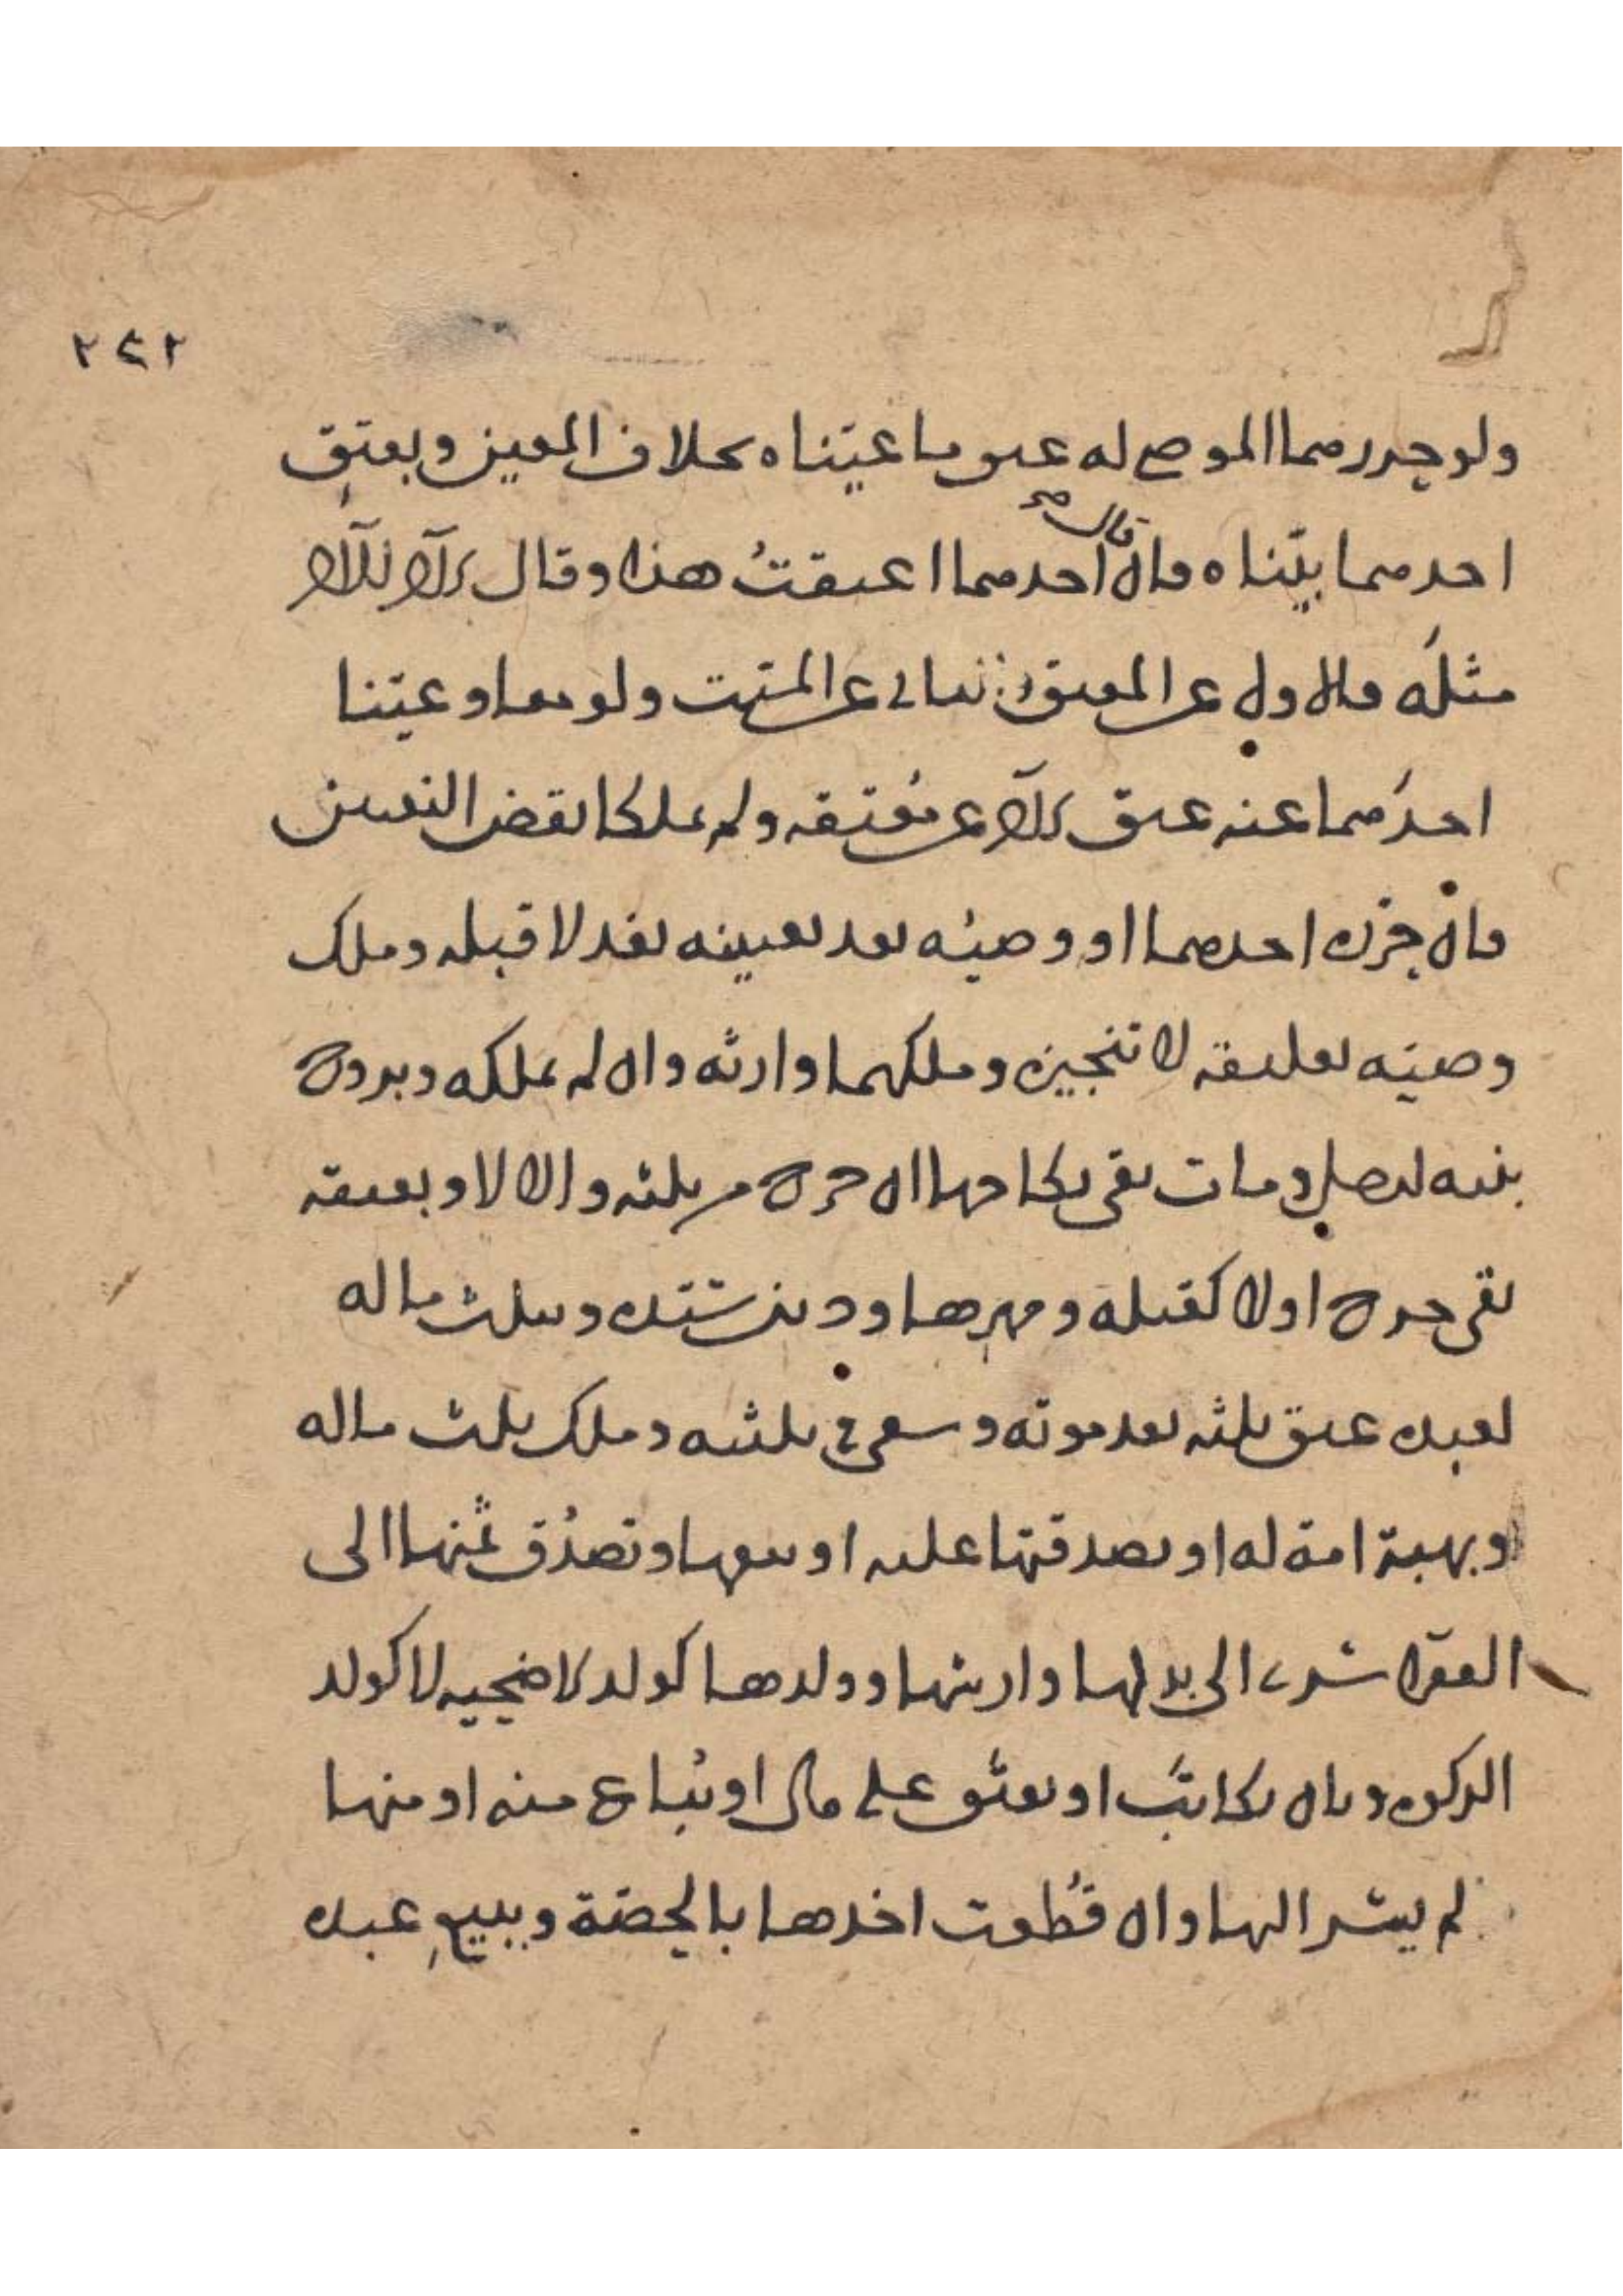 ٢٤٢
ولو حرر هما الموصى له عتق ما عيّناه بخلاف المعين وبعتق
احدهما بيّناه فان قال احدهما اعتقتُ هذا وقال الآخر للآخر
مثلَه فالاول عن المعتق والثاني عن الميّت ولو معا وعيّنا
احدَهما عنه عتق الآخر عن مُعتقه ولم يملكا نقض التعيين
فان حرّره احدهما او وصيُه بعد تعيينه نفذ لا قبله وملك
وصيّه تعليقه لا تنجيزه وملكهما وارثه وان لم يملكه وبردة
بنيه ومات بقى نكاحها ان حرة من ثلثه والا لا وبعتقه
بقى حرة اولا كقبله ومهرها ودين سيّده وبثلث ماله
لعبده عتق ثلثه بعد موته وسعى في ثلثيه وملك ثلث ماله
وبهبة امة له او بصدقتها عليه او بيعها وتصدُق ثمنها الى
الفقرا سرى الى بدلها وارشها وولدها كولد الاضحية لا كولد
الزكوة وبان يكاتَب او يعتَق على مال او يُباع منه او منها
لم يسر اليها وان قُطعت اخذها بالحصّة وببيعِ عبده